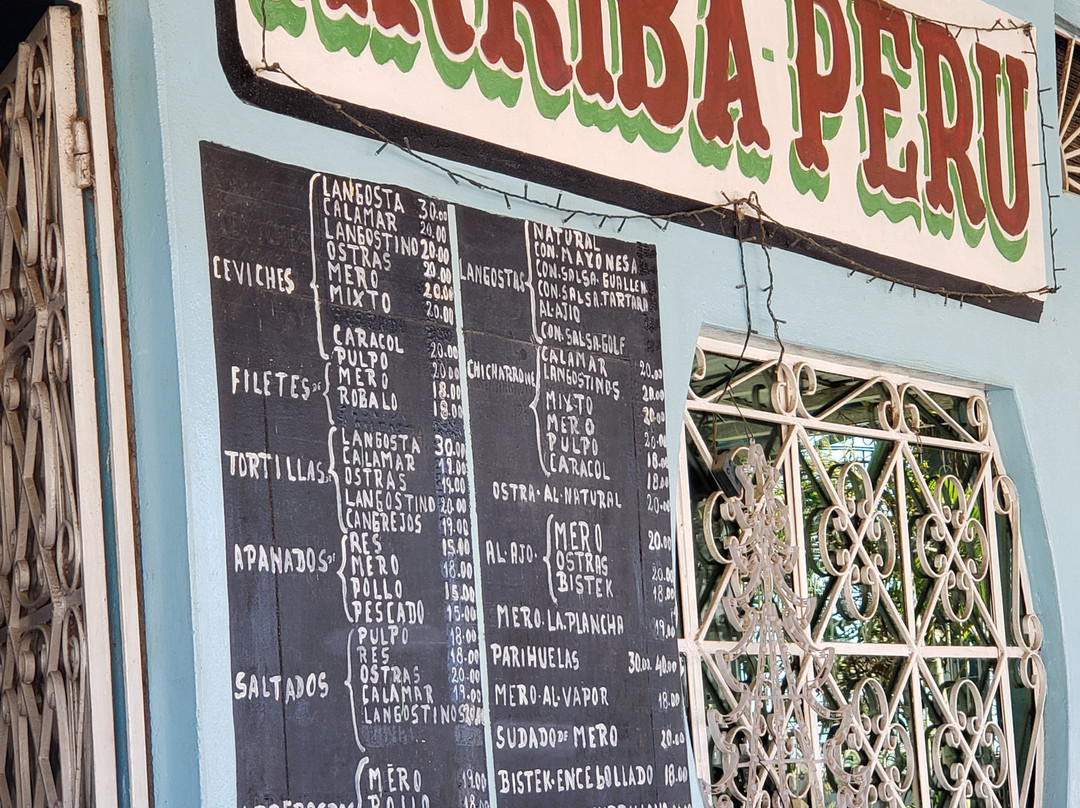 ARRIBA-PERU
CEVICHES
LANGOSTA 30.00
CALAMAR 20.00
LANGOSTINO 20.00
OSTRAS 20.00
MERO 20.00
MIXTO 20.00
CARACOL 20.00
PULPO 20.00
FILETES DE
MERO 18.00
ROBALO 18.00
TORTILLAS
LANGOSTA 30.00
CALAMAR 19.00
OSTRAS 19.00
LANGOSTINO 20.00
CANGREJOS 19.00
APANADOS DE
RES 15.00
MERO 18.00
POLLO 15.00
PESCADO 15.00
SALTADOS
PULPO 18.00
RES 18.00
OSTRAS 20.00
CALAMAR 18.00
LANGOSTINOS
MERO 19.00
POLLO 18.00
LANGOSTAS
NATURAL
CON.MAYONESA
CON.SALSA.GUALLEM
CON.SALSA.TARTARA
AL.AJIO
CON.SALSA.GOLF
CHICHARRONE
CALAMAR 20.00
LANGOSTINOS 20.00
MIXTO 20.00
MERO 20.00
PULPO 18.00
CARACOL 18.00
OSTRA.AL.NATURAL 20.00
AL.AJO.
MERO 20.00
OSTRAS 20.00
BISTEK 18.00
MERO.LA.PLANCHA 19.00
PARIHUELAS 30.00. 40.00
MERO.AL.VAPOR 18.00
SUDADO DE MERO 20.00
BISTEK.ENCEBOLLADO 18.00